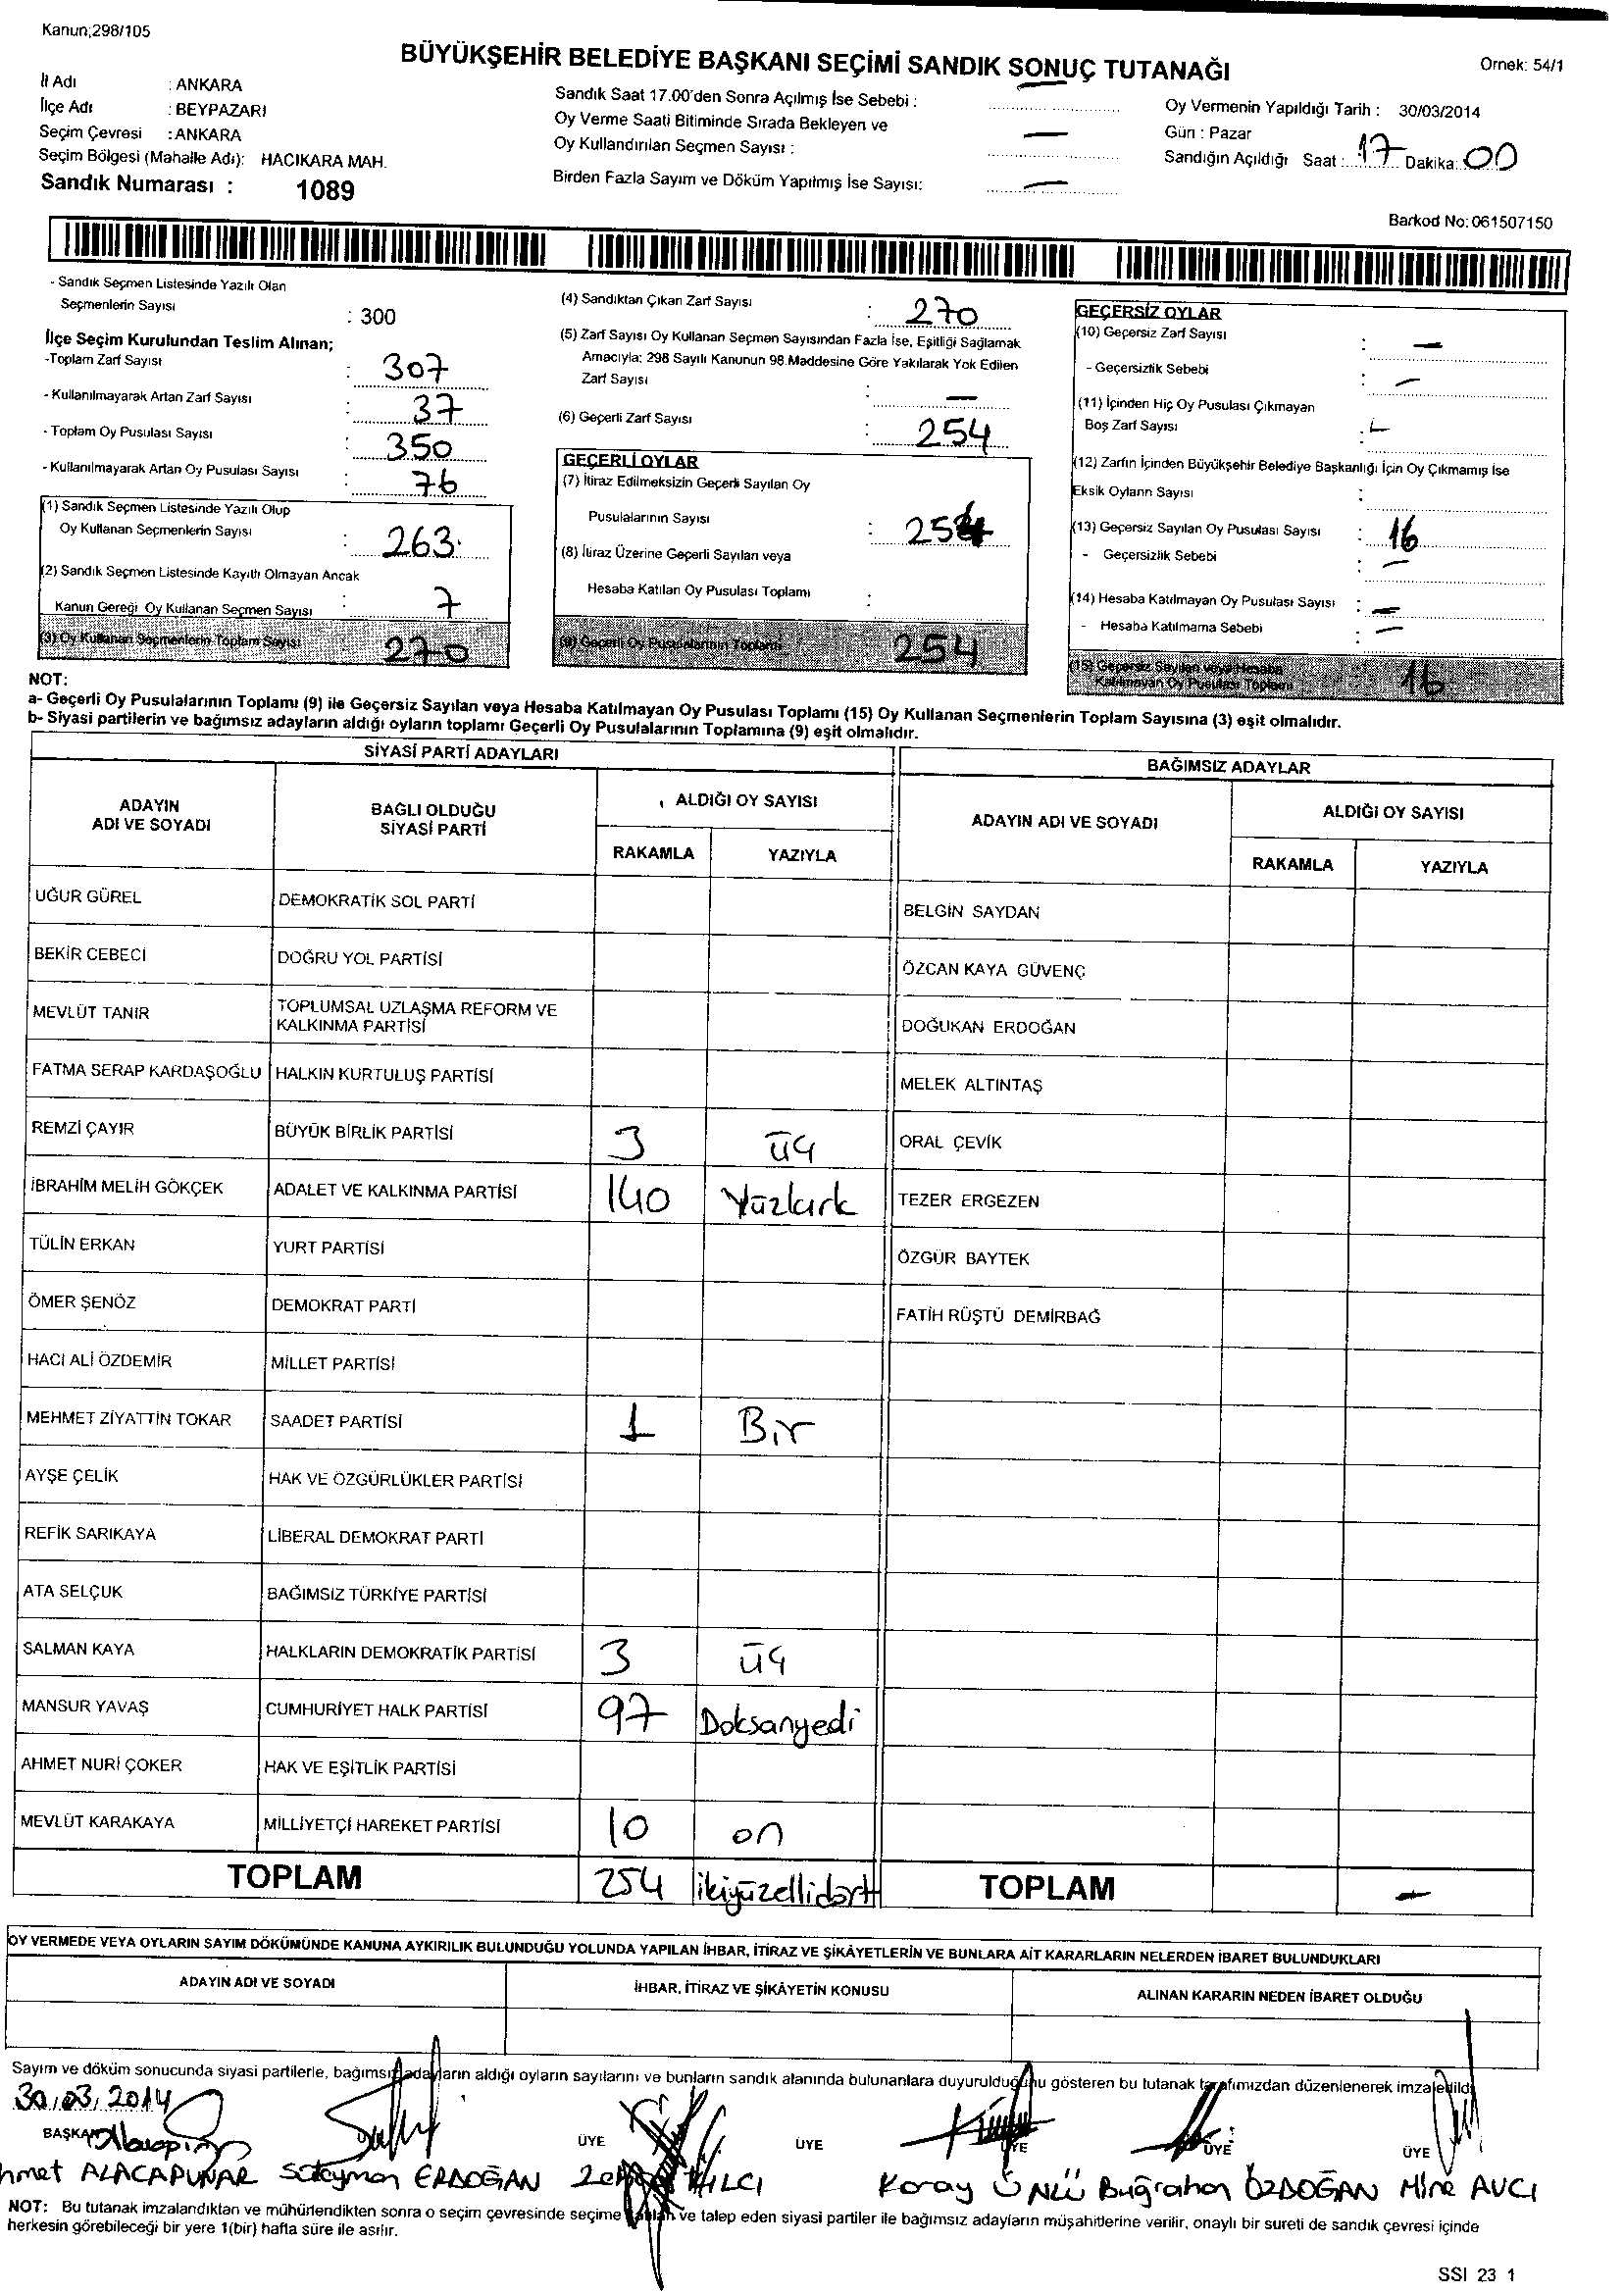 Kanun;298/105
BÜYÜKŞEHİR BELEDİYE BAŞKANI SEÇİMİ SANDIK SONUÇ TUTANAĞI
Ornek: 54/1
İl Adı : ANKARA
İlçe Adı : BEYPAZARI
Seçim Çevresi : ANKARA
Seçim Bölgesi (Mahalle Adı): HACIKARA MAH.
Sandık Numarası : 1089
Sandık Saat 17.00'den Sonra Açılmış İse Sebebi :
Oy Verme Saati Bitiminde Sırada Bekleyen ve
Oy Kullandırılan Seçmen Sayısı : —
Birden Fazla Sayım ve Döküm Yapılmış İse Sayısı: —
Oy Vermenin Yapıldığı Tarih : 30/03/2014
Gün : Pazar
Sandığın Açıldığı Saat : 17 Dakika: 00
Barkod No: 061507150
- Sandık Seçmen Listesinde Yazılı Olan
Seçmenlerin Sayısı : 300
İlçe Seçim Kurulundan Teslim Alınan;
-Toplam Zarf Sayısı : 307
- Kullanılmayarak Artan Zarf Sayısı : 37
- Toplam Oy Pusulası Sayısı : 350
- Kullanılmayarak Artan Oy Pusulası Sayısı : 76
(1) Sandık Seçmen Listesinde Yazılı Olup
Oy Kullanan Seçmenlerin Sayısı : 263
(2) Sandık Seçmen Listesinde Kayıtlı Olmayan Ancak
Kanun Gereği Oy Kullanan Seçmen Sayısı : 7
(3) Oy Kullanan Seçmenlerin Toplam Sayısı 270
(4) Sandıktan Çıkan Zarf Sayısı : 270
(5) Zarf Sayısı Oy Kullanan Seçmen Sayısından Fazla İse, Eşitliği Sağlamak
Amacıyla; 298 Sayılı Kanunun 98.Maddesine Göre Yakılarak Yok Edilen
Zarf Sayısı : —
(6) Geçerli Zarf Sayısı : 254
GEÇERLİ OYLAR
(7) İtiraz Edilmeksizin Geçerli Sayılan Oy
Pusulalarının Sayısı : 254
(8) İtiraz Üzerine Geçerli Sayılan veya
Hesaba Katılan Oy Pusulası Toplamı :
(9) Geçerli Oy Pusulalarının Toplamı 254
GEÇERSİZ OYLAR
(10) Geçersiz Zarf Sayısı : —
- Geçersizlik Sebebi : —
(11) İçinden Hiç Oy Pusulası Çıkmayan
Boş Zarf Sayısı : —
(12) Zarfın İçinden Büyükşehir Belediye Başkanlığı İçin Oy Çıkmamış İse
Eksik Oyların Sayısı :
(13) Geçersiz Sayılan Oy Pusulası Sayısı : 16
- Geçersizlik Sebebi : —
(14) Hesaba Katılmayan Oy Pusulası Sayısı : —
- Hesaba Katılmama Sebebi : —
(15) Geçersiz Sayılan veya Hesaba
Katılmayan Oy Pusulası Toplamı 16
NOT:
a- Geçerli Oy Pusulalarının Toplamı (9) ile Geçersiz Sayılan veya Hesaba Katılmayan Oy Pusulası Toplamı (15) Oy Kullanan Seçmenlerin Toplam Sayısına (3) eşit olmalıdır.
b- Siyasi partilerin ve bağımsız adayların aldığı oyların toplamı Geçerli Oy Pusulalarının Toplamına (9) eşit olmalıdır.
SİYASİ PARTİ ADAYLARI
ADAYIN ADI VE SOYADI
BAĞLI OLDUĞU SİYASİ PARTİ
ALDIĞI OY SAYISI
RAKAMLA YAZIYLA
UĞUR GÜREL DEMOKRATİK SOL PARTİ
BEKİR CEBECİ DOĞRU YOL PARTİSİ
MEVLÜT TANIR TOPLUMSAL UZLAŞMA REFORM VE KALKINMA PARTİSİ
FATMA SERAP KARDAŞOĞLU HALKIN KURTULUŞ PARTİSİ
REMZİ ÇAYIR BÜYÜK BİRLİK PARTİSİ 3 üç
İBRAHİM MELİH GÖKÇEK ADALET VE KALKINMA PARTİSİ 140 Yüzkırk
TÜLİN ERKAN YURT PARTİSİ
ÖMER ŞENÖZ DEMOKRAT PARTİ
HACI ALİ ÖZDEMİR MİLLET PARTİSİ
MEHMET ZİYATTİN TOKAR SAADET PARTİSİ 1 Bir
AYŞE ÇELİK HAK VE ÖZGÜRLÜKLER PARTİSİ
REFİK SARIKAYA LİBERAL DEMOKRAT PARTİ
ATA SELÇUK BAĞIMSIZ TÜRKİYE PARTİSİ
SALMAN KAYA HALKLARIN DEMOKRATİK PARTİSİ 3 üç
MANSUR YAVAŞ CUMHURİYET HALK PARTİSİ 97 Doksanyedi
AHMET NURİ ÇOKER HAK VE EŞİTLİK PARTİSİ
MEVLÜT KARAKAYA MİLLİYETÇİ HAREKET PARTİSİ 10 on
TOPLAM 254 ikiyüzellidört
BAĞIMSIZ ADAYLAR
ADAYIN ADI VE SOYADI
ALDIĞI OY SAYISI
RAKAMLA YAZIYLA
BELGİN SAYDAN
ÖZCAN KAYA GÜVENÇ
DOĞUKAN ERDOĞAN
MELEK ALTINTAŞ
ORAL ÇEVİK
TEZER ERGEZEN
ÖZGÜR BAYTEK
FATİH RÜŞTÜ DEMİRBAĞ
TOPLAM —
OY VERMEDE VEYA OYLARIN SAYIM DÖKÜMÜNDE KANUNA AYKIRILIK BULUNDUĞU YOLUNDA YAPILAN İHBAR, İTİRAZ VE ŞİKÂYETLERİN VE BUNLARA AİT KARARLARIN NELERDEN İBARET BULUNDUKLARI
ADAYIN ADI VE SOYADI İHBAR, İTİRAZ VE ŞİKÂYETİN KONUSU ALINAN KARARIN NEDEN İBARET OLDUĞU
Sayım ve döküm sonucunda siyasi partilerle, bağımsız adayların aldığı oyların sayılarını ve bunların sandık alanında bulunanlara duyurulduğunu gösteren bu tutanak tarafımızdan düzenlenerek imza edildi.
30.03.2014
BAŞKAN ÜYE ÜYE ÜYE ÜYE ÜYE
ALACAPUNAR Süleyman ERDOĞAN KILCI Koray ÜNLÜ Buğrahan ÖZDOĞAN Mine AVCI
NOT: Bu tutanak imzalandıktan ve mühürlendikten sonra o seçim çevresinde seçime katılan ve talep eden siyasi partiler ile bağımsız adayların müşahitlerine verilir, onaylı bir sureti de sandık çevresi içinde
herkesin görebileceği bir yere 1(bir) hafta süre ile asılır.
SSI 23 1